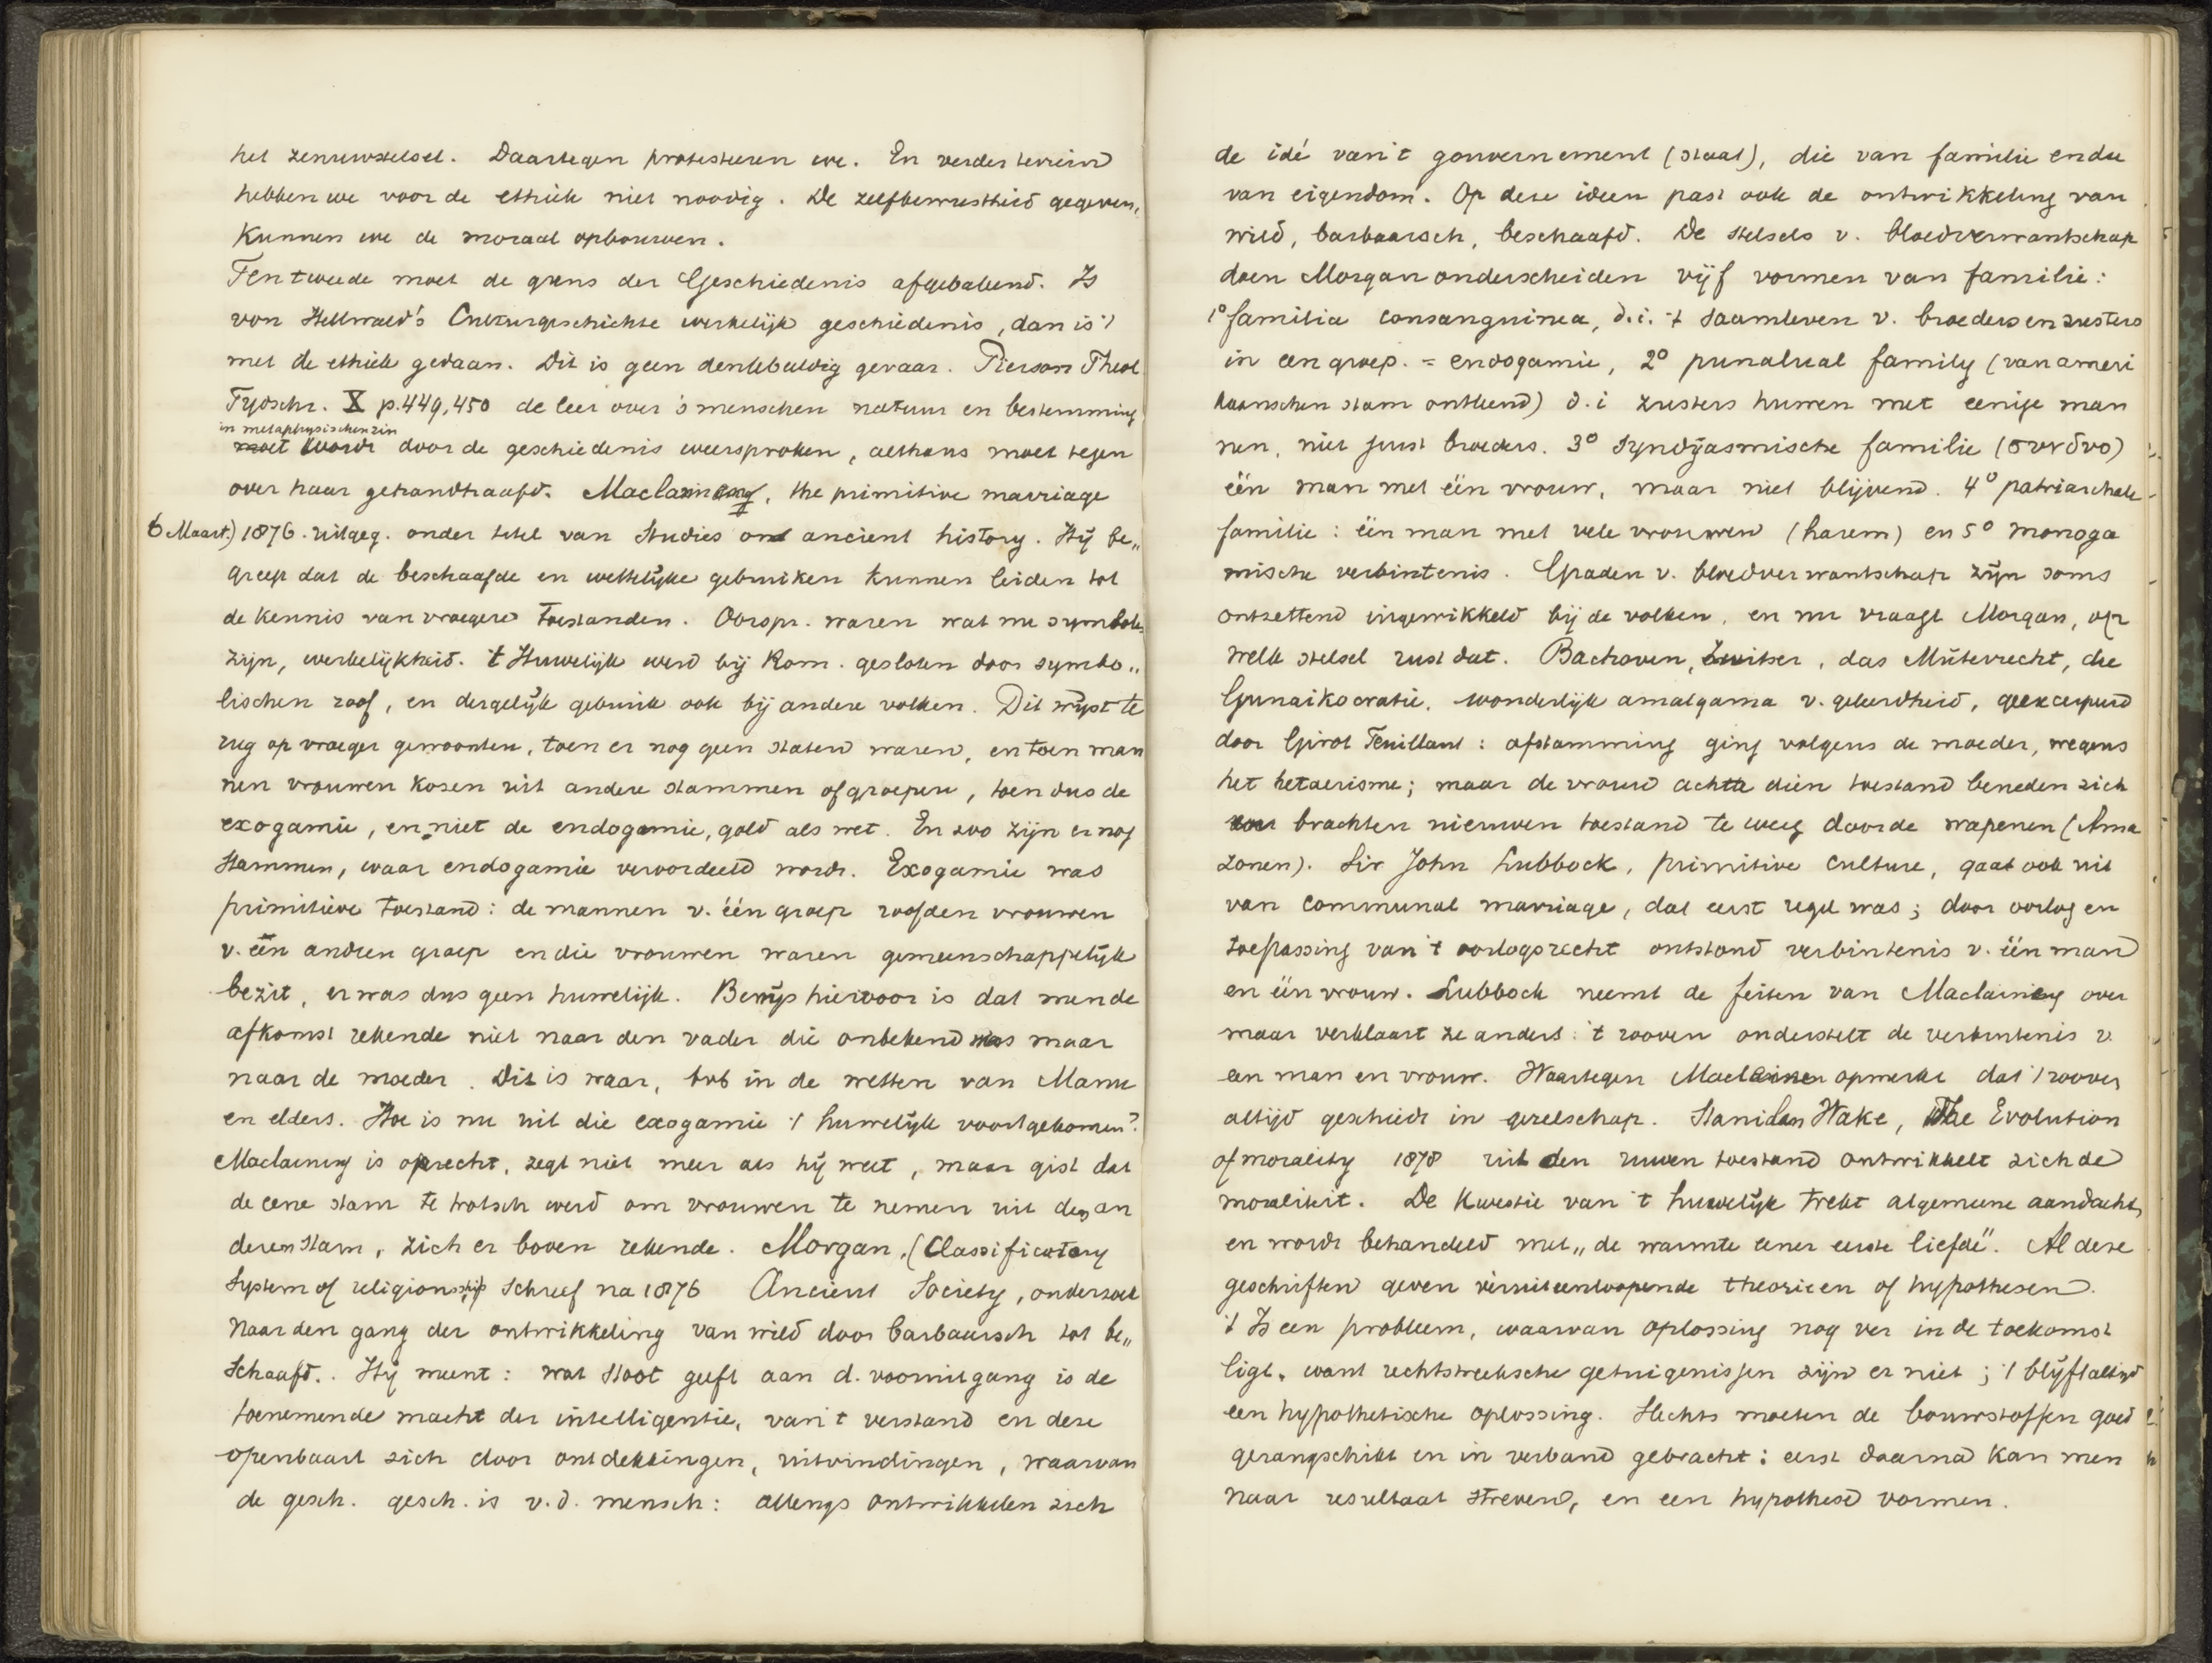 het zenuwstelsel. Daartegen protesteren we. En verder terrein
hebben we voor de ethiek niet noodig. De zelfbewustheid gegeven,
kunnen we de moraal opbouwen.
Ten tweede moet de grens der Geschiedenis afgebakend. Is
von Hellwald's Culturgeschichte werkelijk geschiedenis, dan is 't
met de ethiek gedaan. Dit is geen denkbeeldig gevaar. Pierson Theol
Tijdschr. X p. 449, 450 de leer over 's menschen natuur en bestemming
in metaphysischen zin
moet wordt door de geschiedenis weersproken, althans moet tegen
over haar gehandhaafd. Maclainang, the primitive marriage
6 Maart.) 1876. uitgeg. onder titel van Studies on ancient history. Hij be„
greep dat de beschaafde en wettelijke gebruiken kunnen leiden tot
de kennis van vroegere toestanden. Oorspr. waren wat nu symbolen
zijn, werkelijkheid. 't Huwelijk werd bij Rom. gesloten door symbo„
lischen roof, en dergelijk gebruik ook bij andere volken. Dit wijst te
rug op vroeger gewoonten, toen er nog geen staten waren, en toen man
nen vrouwen kozen uit andere stammen of groepen, toen dus de
exogamie, en niet de endogamie, gold als wet. En zoo zijn er nog
stammen, waar endogamie veroordeeld wordt. Exogamie was
primitieve toestand: de mannen v. één groep roofden vrouwen
v. een andren groep en die vrouwen waren gemeenschappelijk
bezit, er was dus geen huwelijk. Bewijs hiervoor is dat men de
afkomst rekende niet naar den vader die onbekend was maar
naar de moeder. Dit is waar, bvb in de wetten van Manu
en elders. Hoe is nu uit die exogamie 't huwelijk voortgekomen?
Maclainang is oprecht, zegt niet meer als hij weet, maar gist dat
de eene stam te trotsch werd om vrouwen te nemen uit den an
deren stam, zich er boven rekende. Morgan, (Classificatory
System of religionship schreef na 1876 Ancient Society, onderzoek
naar den gang der ontwikkeling van wild door barbaarsch tot be„
schaafd. Hij meent: wat stoot geeft aan d. vooruitgang is de
toenemende macht der intelligentie, van 't verstand en deze
openbaart zich door ontdekkingen, uitvindingen, waarvan
de gesch. gesch. is v. d. mensch: allengs ontwikkelen zich
de idé van 't gouvernement (staat), die van familie en die
van eigendom. Op deze ideen past ook de ontwikkeling van
wild, barbaarsch, beschaafd. De stelsels v. bloedverwantschap
doen Morgan onderscheiden vijf vormen van familie:
1° familia consanguinea, d.i. 't saamleven v. broeders en zusters
in een groep. = endogamie, 2° punalual family (van ameri
kaanschen stam ontleend) d.i zusters huwen met eenige man
nen, niet juist broeders. 3° Syndyasmische familie (συνδυο)
één man met één vrouw, maar niet blijvend. 4° patriarchale
familie: één man met vele vrouwen (harem) en 5° monoga
mische verbintenis. Graden v. bloedverwantschap zijn soms
ontzettend ingewikkeld bij de volken, en nu vraagt Morgan, op
welk stelsel rust dat. Bachoven, Zwitser, das Mutterrecht, die
Gunaikocratie. wonderlijk amalgama v. geleerdheid, geexcerpeerd
door Girot Teuillant: afstamming ging volgens de moeder, wegens
het hetaerisme; maar de vrouw achtte dien toestand beneden zich
brachten nieuwen toestand te weeg door de wapenen (Ama
zonen). Sir John Lubbock, primitive culture, gaat ook uit
van communal marriage, dat eerst regel was; door oorlog en
toepassing van 't oorlogsrecht ontstond verbintenis v. één man
en één vrouw. Lubbock neemt de feiten van Maclainang over
maar verklaart ze anders: 't rooven onderstelt de verbintenis v.
een man en vrouw. Waartegen Maclainen opmerkt dat 't rooven
altijd geschiedt in gezelschap. Staniland Wake, The Evolution
of morality 1878 uit den ruwen toestand ontwikkelt zich de
moraliteit. De kwestie van 't huwelijk trekt algemeene aandacht,
en wordt behandeld met „de warmte eener eerste liefde". Al deze
geschriften geven veruiteenloopende theorieen of hypothesen.
't Is een probleem, waarvan oplossing nog ver in de toekomst
ligt, want rechtstreeksche getuigenissen zijn er niet; 't blijft altijd
een hypothetische oplossing. Slechts moeten de bouwstoffen goed
gerangschikt en in verband gebracht: eerst daarna kan men
naar resultaat streven, en een hypothese vormen.